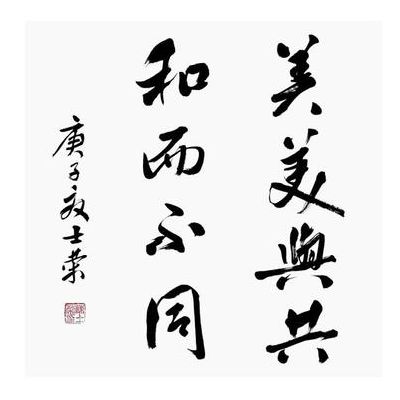 美美與共
和而不同
庚子友士榮